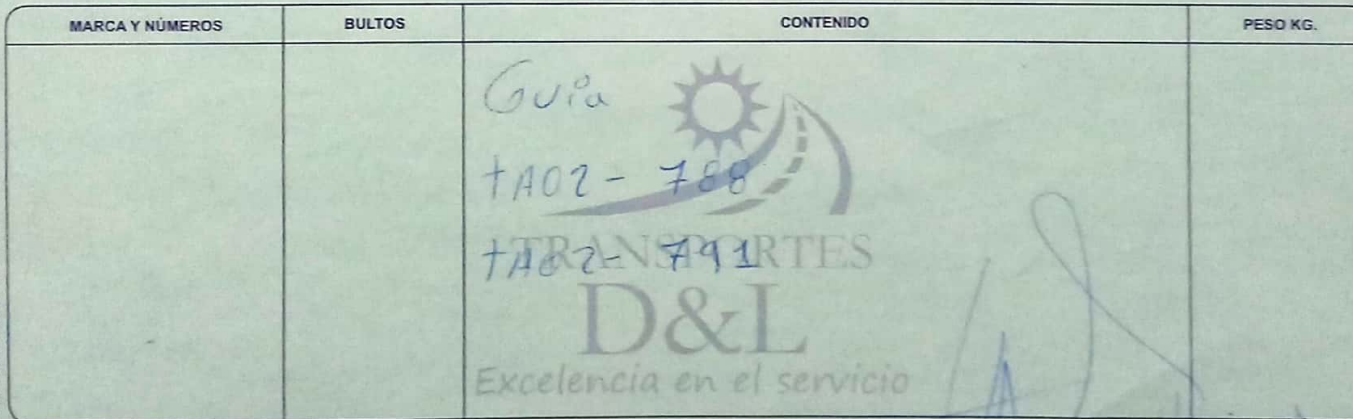 MARCA Y NÚMEROS BULTOS CONTENIDO PESO KG.
Guia
TA02 - 788
TA02 - 791
TRANSPORTES
D&L
Excelencia en el servicio